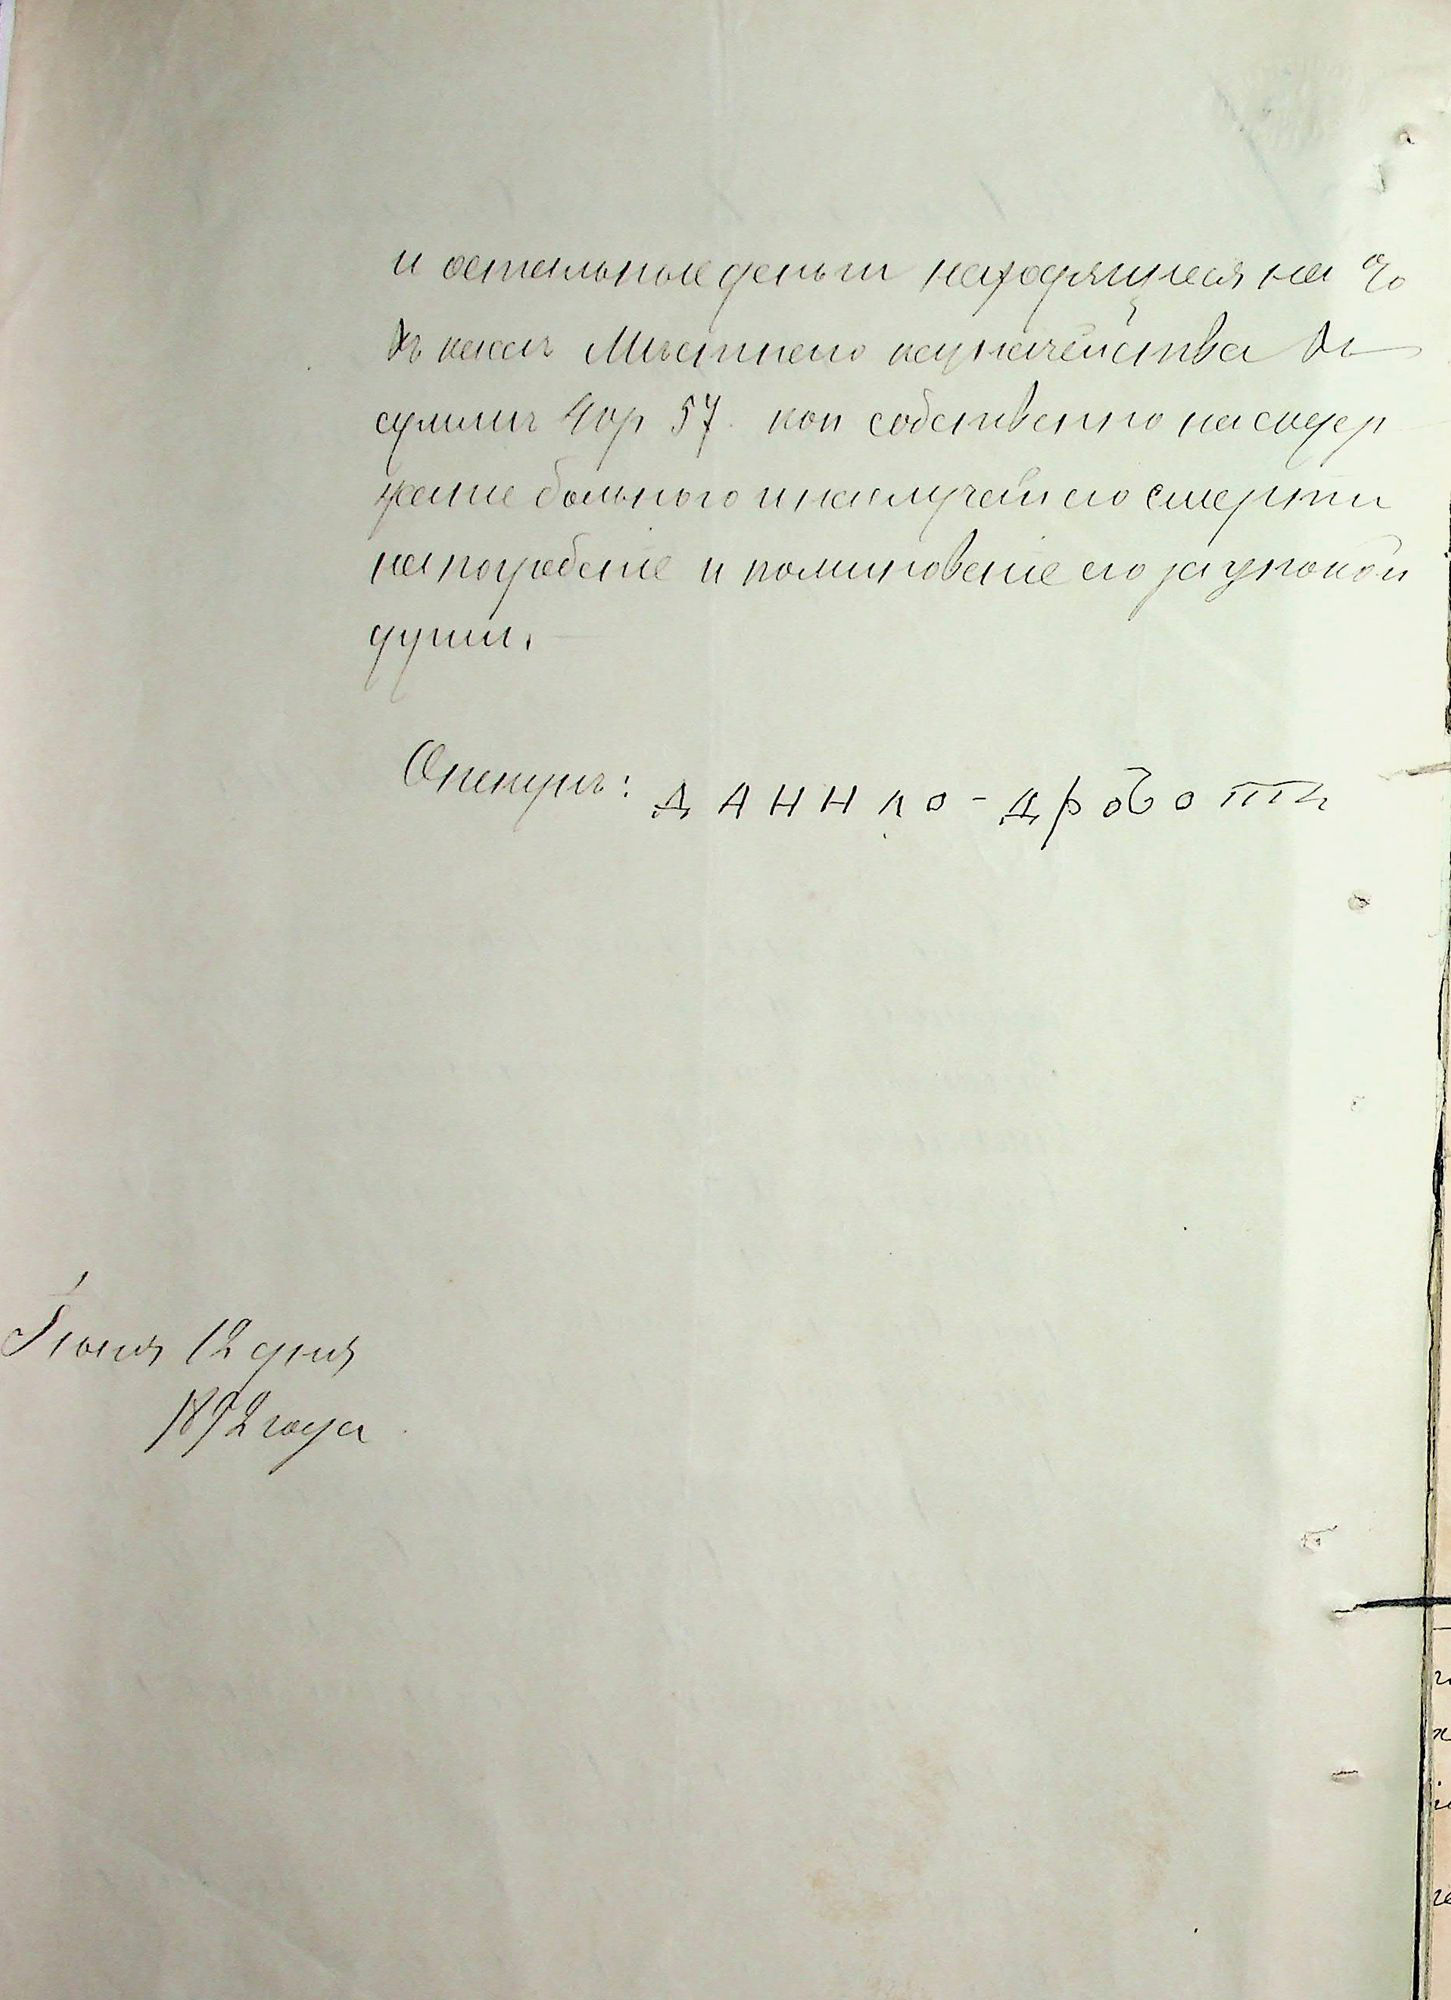 и остальные деньги находящиеся на %
въ кассѣ Мѣстнаго казначейства въ
суммѣ 40р 57 коп собственно на содер
жаніе больного и на случай его смерти
на погребеніе и поминовеніе его за упокой
души.
Опекунъ: ДАННЛО-ДРОБОТЪ
Іюня 12 дня
1892 года